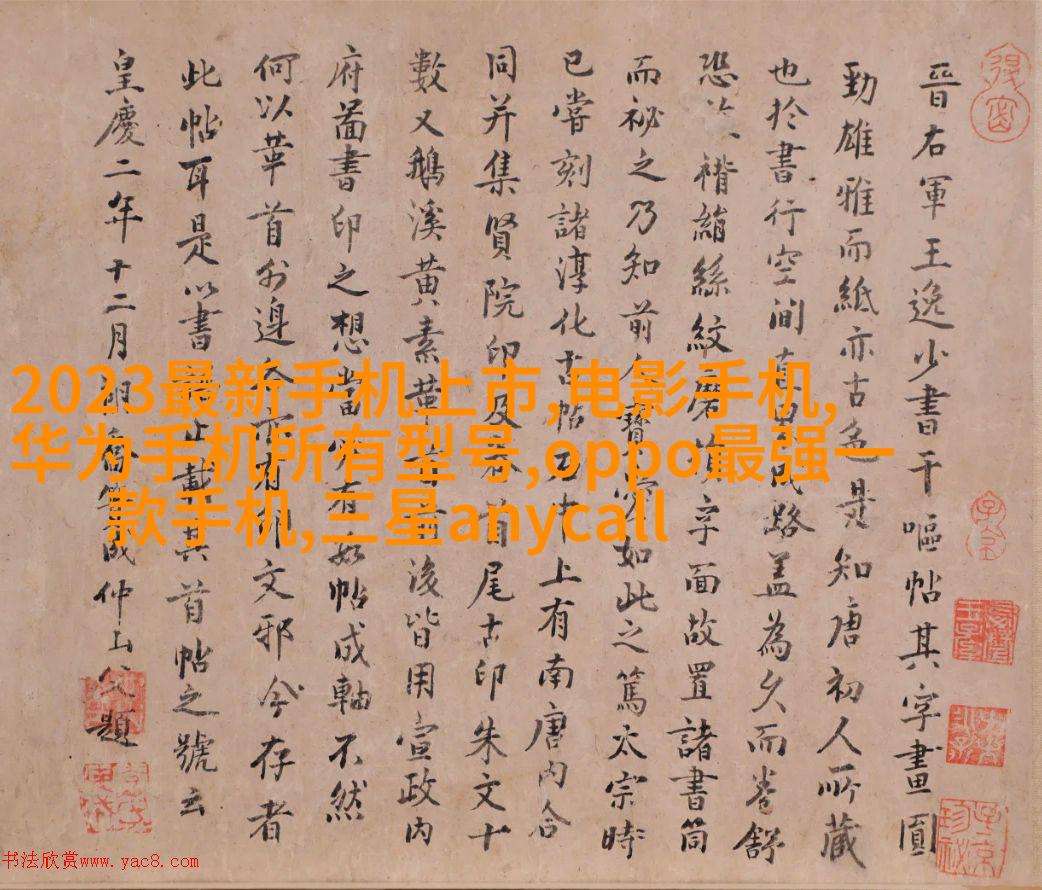 晉右軍王逸少書干嘔帖其字畫圓
勁雄雅而紙亦古色是知唐初人所藏
也於書行空間 路蓋為久而卷舒
恐 褙縮絲紋磨 字面故置諸書筒
而祕之乃知前人寶 如此之篤太宗時
已嘗刻諸淳化古帖 上有南唐內合
同并集賢院印及 首尾古印朱文十
數又鵝溪黃素 後皆用宣政內
府啚書印之想當 有 帖成軸不然
何以華首外邊 有 文邪今存者
此帖耳是以書 載其首帖之號云
皇慶二年十二月 仲山父題
2023最新手机上市,电影手机,
华为手机所有型号,oppo最强一
款手机,三星anycall
书法欣赏www.yac8.com